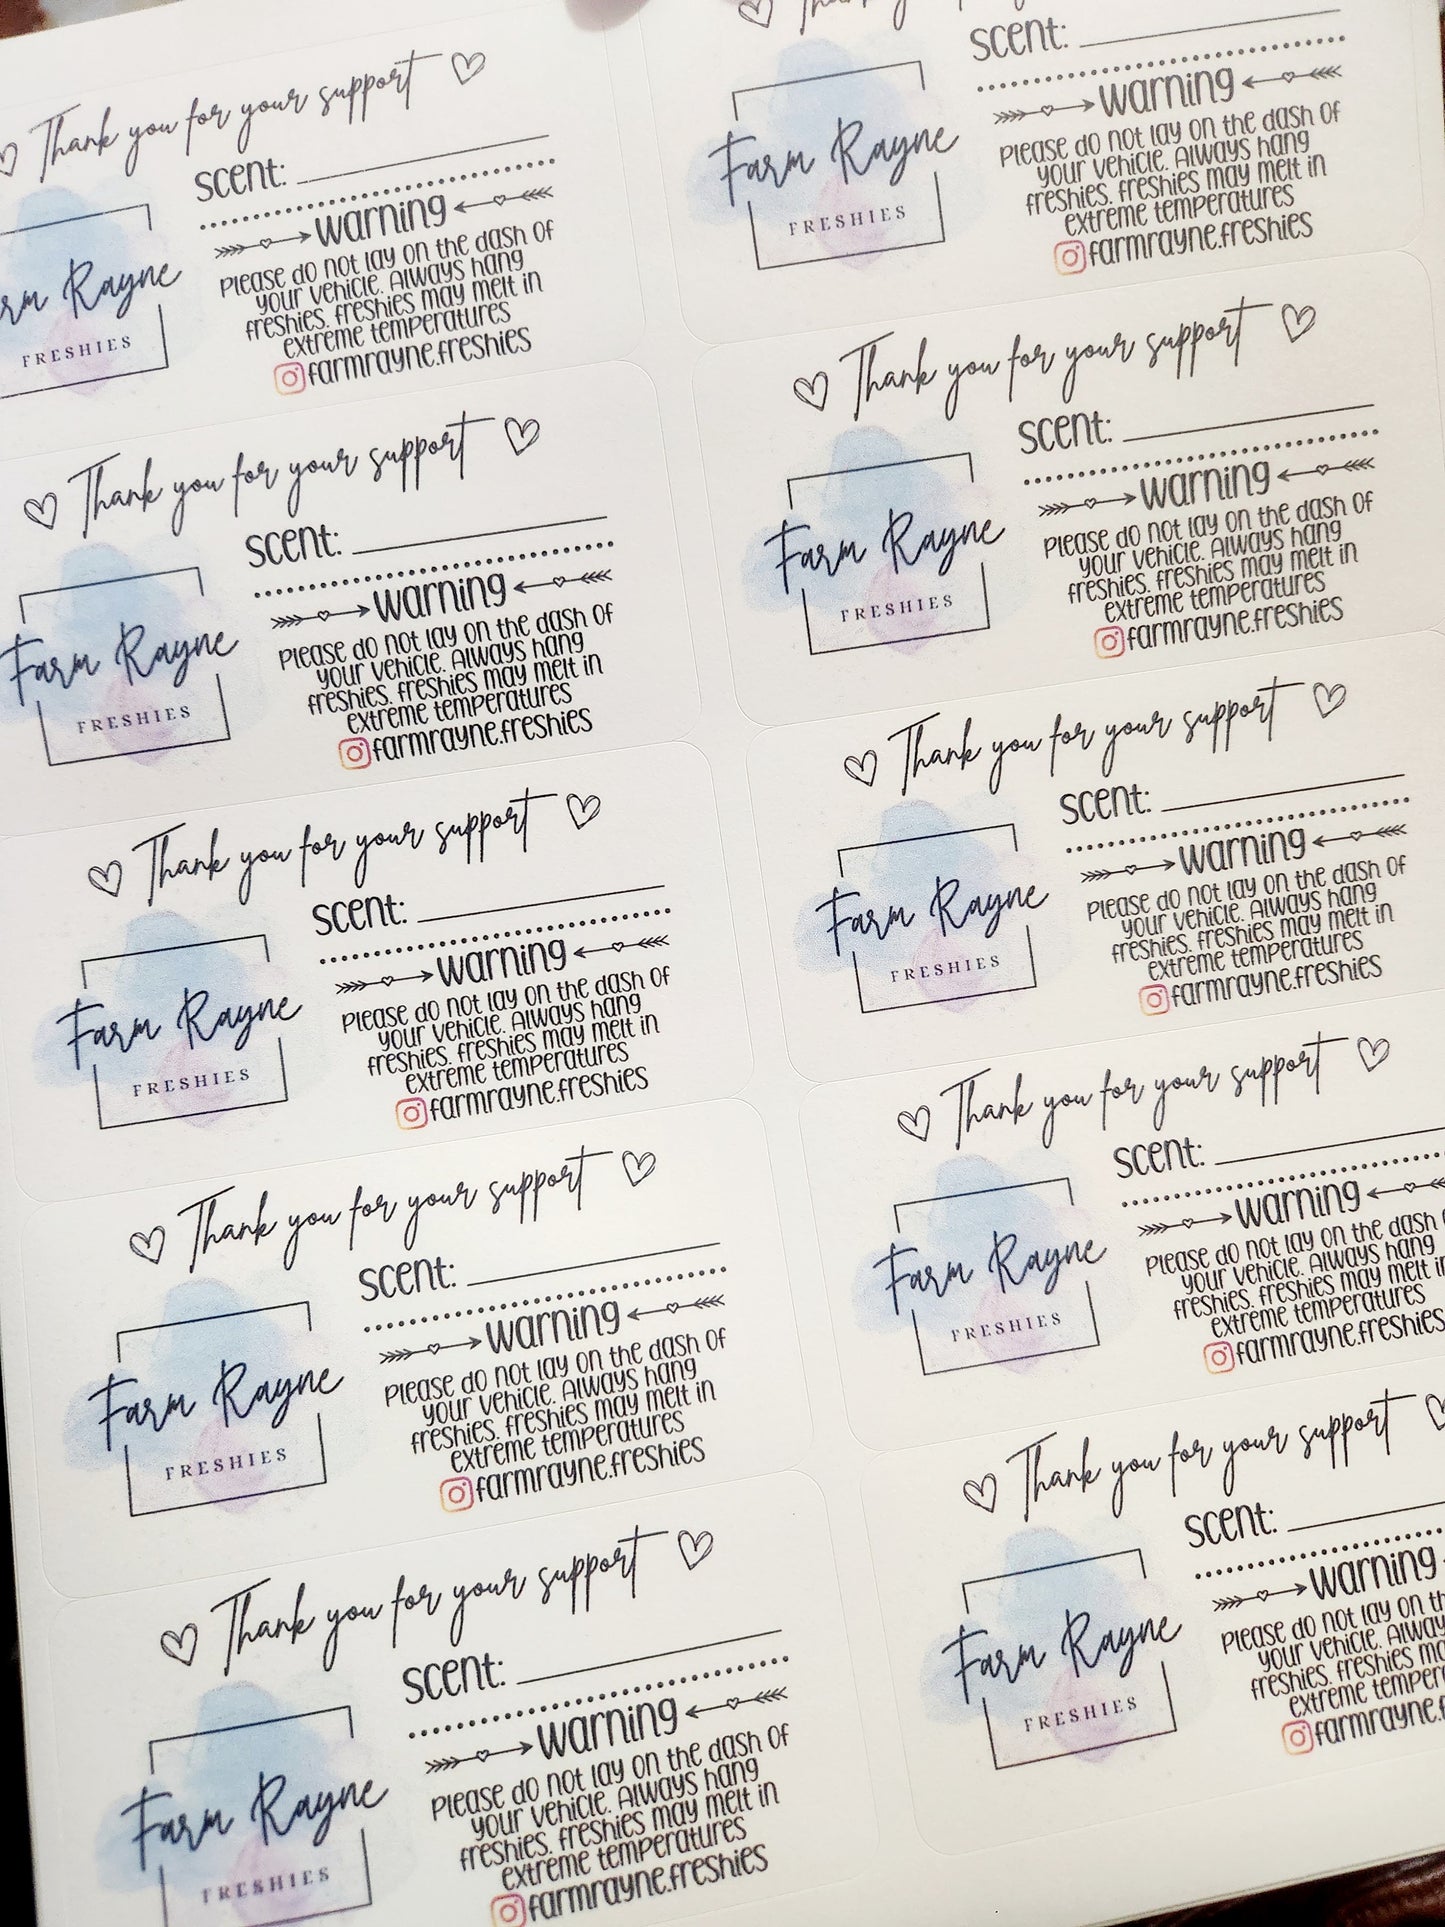 Thank you for your support
scent:
warning
Please do not lay on the dash of
your vehicle. Always hang
freshies. freshies may melt in
extreme temperatures
farmrayne.freshies
rm Rayne
FRESHIES
Thank you for your support
scent:
warning
Please do not lay on the dash of
your vehicle. Always hang
freshies. freshies may melt in
extreme temperatures
farmrayne.freshies
Farm Rayne
FRESHIES
Thank you for your support
scent:
warning
Please do not lay on the dash of
your vehicle. Always hang
freshies. freshies may melt in
extreme temperatures
farmrayne.freshies
Farm Rayne
FRESHIES
Thank you for your support
scent:
warning
Please do not lay on the dash of
your vehicle. Always hang
freshies. freshies may melt in
extreme temperatures
farmrayne.freshies
Farm Rayne
FRESHIES
Thank you for your support
scent:
warning
Please do not lay on the dash of
your vehicle. Always hang
freshies. freshies may melt in
extreme temperatures
farmrayne.freshies
Farm Rayne
FRESHIES
scent:
warning
Please do not lay on the dash of
your vehicle. Always hang
freshies. freshies may melt in
extreme temperatures
farmrayne.freshies
Farm Rayne
FRESHIES
Thank you for your support
scent:
warning
Please do not lay on the dash of
your vehicle. Always hang
freshies. freshies may melt in
extreme temperatures
farmrayne.freshies
Farm Rayne
FRESHIES
Thank you for your support
scent:
warning
Please do not lay on the dash of
your vehicle. Always hang
freshies. freshies may melt in
extreme temperatures
farmrayne.freshies
Farm Rayne
FRESHIES
Thank you for your support
scent:
warning
Please do not lay on the dash
your vehicle. Always hang
freshies. freshies may melt in
extreme temperatures
farmrayne.freshies
Farm Rayne
FRESHIES
Thank you for your support
scent:
warning
Please do not lay on
your vehicle.
freshies. freshies
extreme
farmrayne.
Farm Rayne
FRESHIES